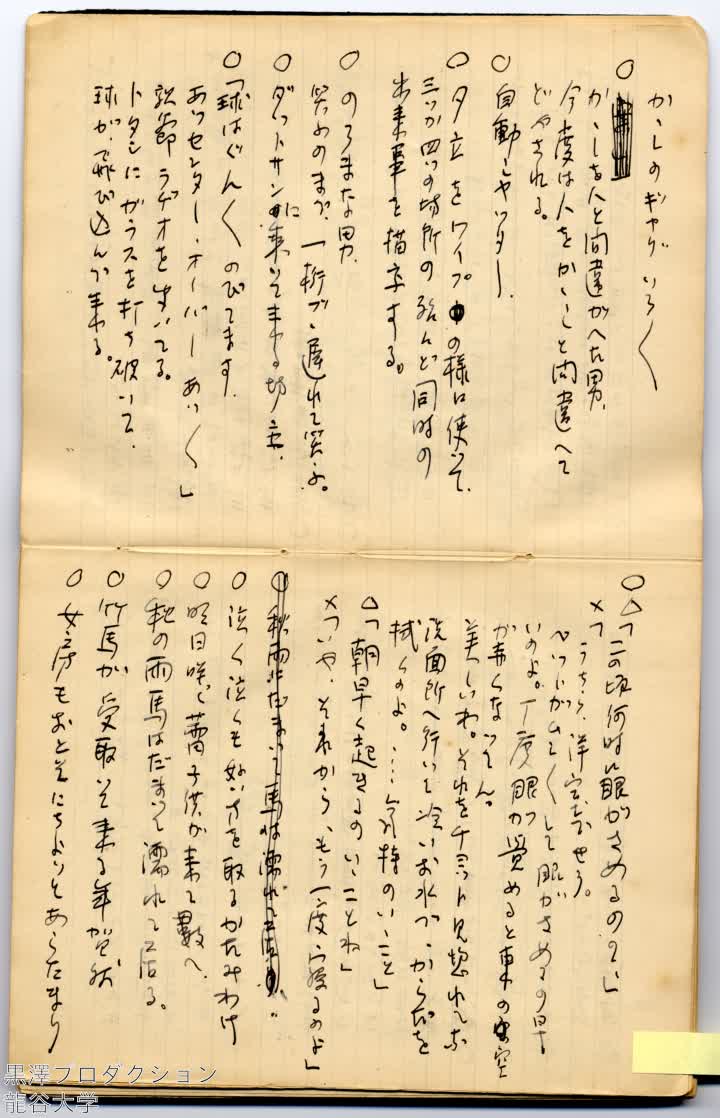 かゝしのギャグいろ〱
○
かゝしを人と間違がへた男、
今度は人をかゝしと間違へて
どやされる。
○ 自動シャッター、
○ 夕立をワイプの様に使って、
三つか四つの場所の殆んど同時の
出来事を描写する。
○ のろまな男、
笑ふのまで、一桁づゝ遅れて笑ふ。
○ ダットサンに乗って来る坊主、
○「球はぐん〱のびてます、
あっセンター・オーバーあっ〱」
ラヂオをきいてる。
トタンにガラスを打ち破いて、
球が、飛び込んで来る。
○△「この頃何時に眼がさめるの?」
×「うち、洋室でせう。
ベッドが
いのよ。丁度眼が覚めると東の空
が赤くなってん。
美しいわ。それを十ミット見惚れて
洗面所へ行って冷いお水で、からだを
拭くのよ。……気持のいゝこと」
△「朝早く起きるのいゝことね」
×「いや、それから、もう一度寝るのよ」
○ 秋雨にだまって馬は濡れて居り。
○ 泣く泣くも好い方を取るかたみわけ
○ 明日咲く蕾子供が来て数へ
○ 秋の雨馬はだまって濡れて居る。
○ 竹馬が受取って来る年賀状
○ 女房もおとそにちょいとあらたまり
黒澤プロダクション
龍谷大学